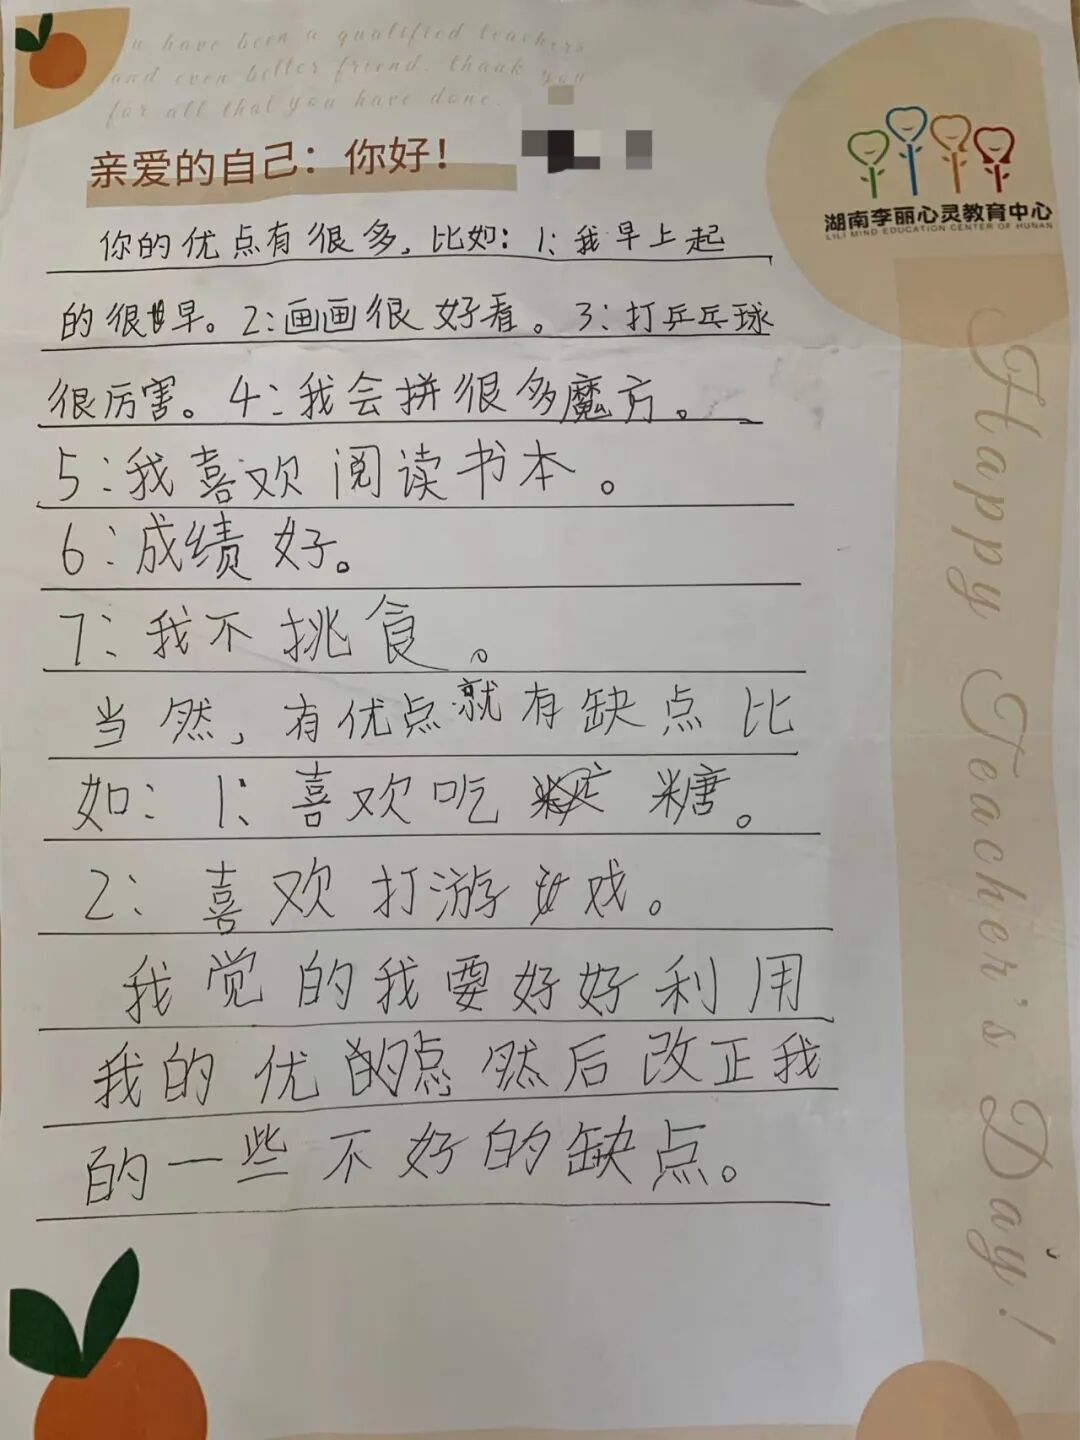 u have been a qualified teachers
and even better friend. thank you
for all that you have done.
亲爱的自己：你好！
湖南李丽心灵教育中心
LILI MIND EDUCATION CENTER OF HUNAN
你的优点有很多，比如：1：我早上起
的很早。2：画画很好看。3：打乒乓球
很厉害。4：我会拼很多魔方。
5：我喜欢阅读书本。
6：成绩好。
7：我不挑食。
当然，有优点就有缺点比
如：1：喜欢吃糖。
2：喜欢打游戏。
我觉的我要好好利用
我的优点然后改正我
的一些不好的缺点。
Happy Teacher's Day!